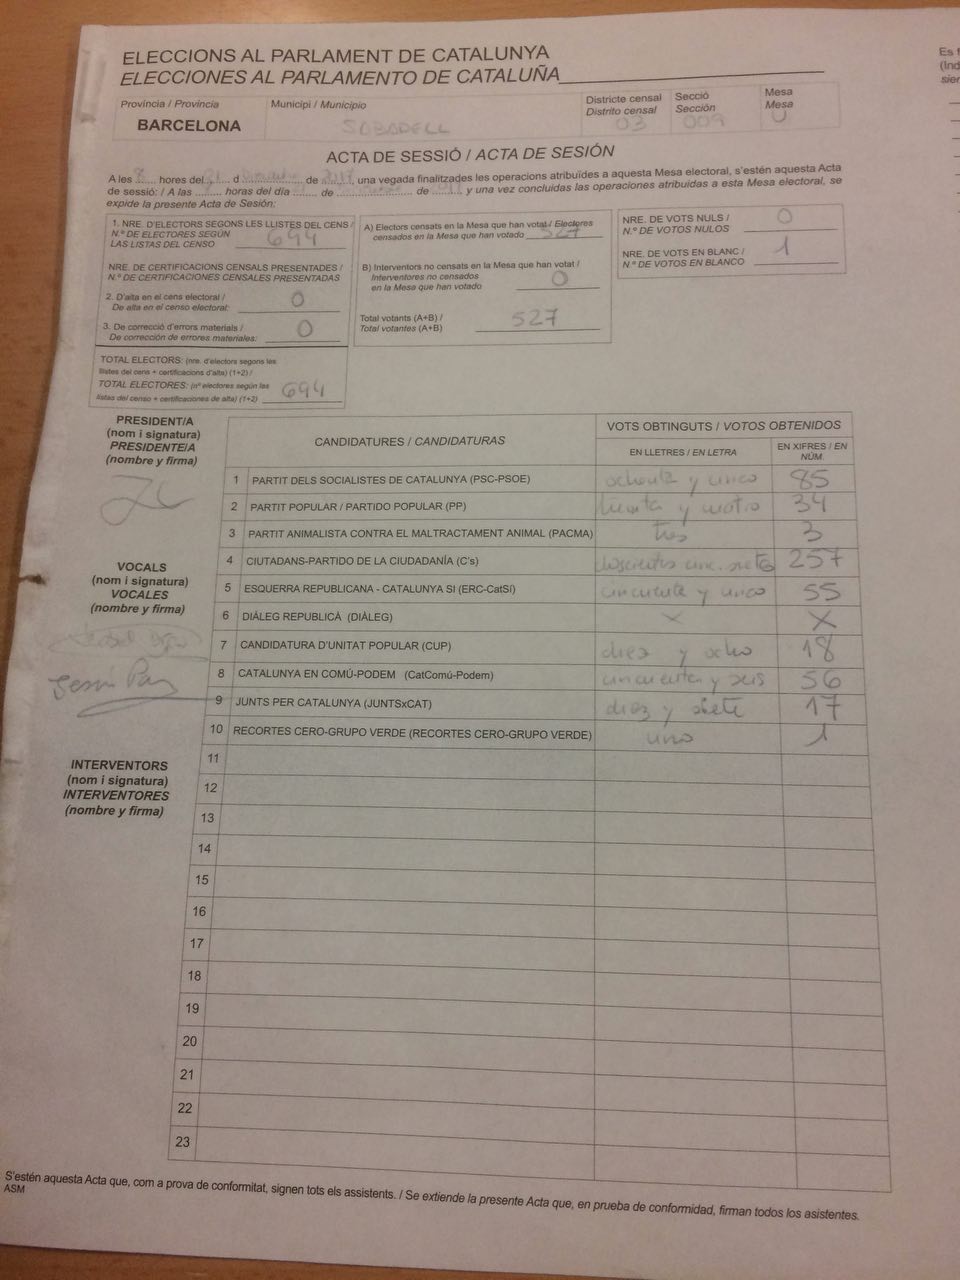 ELECCIONS AL PARLAMENT DE CATALUNYA
ELECCIONES AL PARLAMENTO DE CATALUÑA
Província / Provincia
BARCELONA
Municipi / Municipio
SABADELL
Districte censal
Distrito censal
03
Secció
Sección
009
Mesa
Mesa
U
ACTA DE SESSIÓ / ACTA DE SESIÓN
A les hores del d de una vegada finalitzades les operacions atribuïdes a aquesta Mesa electoral, s'estén aquesta Acta
de sessió: / A las horas del día de de y una vez concluidas las operaciones atribuidas a esta Mesa electoral, se
expide la presente Acta de Sesión:
1. NRE. D'ELECTORS SEGONS LES LLISTES DEL CENS /
N.º DE ELECTORES SEGÚN
LAS LISTAS DEL CENSO 694
NRE. DE CERTIFICACIONS CENSALS PRESENTADES /
N.º DE CERTIFICACIONES CENSALES PRESENTADAS
2. D'alta en el cens electoral /
De alta en el censo electoral: 0
3. De correcció d'errors materials /
De corrección de errores materiales: 0
TOTAL ELECTORS: (nre. d'electors segons les
llistes del cens + certificacions d'alta) (1+2) /
TOTAL ELECTORES: (nº electores según las
listas del censo + certificaciones de alta) (1+2) 694
A) Electors censats en la Mesa que han votat / Electores
censados en la Mesa que han votado 527
B) Interventors no censats en la Mesa que han votat /
Interventores no censados
en la Mesa que han votado 0
Total votants (A+B) /
Total votantes (A+B) 527
NRE. DE VOTS NULS /
N.º DE VOTOS NULOS 0
NRE. DE VOTS EN BLANC /
N.º DE VOTOS EN BLANCO 1
PRESIDENT/A
(nom i signatura)
PRESIDENTE/A
(nombre y firma)
VOCALS
(nom i signatura)
VOCALES
(nombre y firma)
INTERVENTORS
(nom i signatura)
INTERVENTORES
(nombre y firma)
CANDIDATURES / CANDIDATURAS
VOTS OBTINGUTS / VOTOS OBTENIDOS
EN LLETRES / EN LETRA
EN XIFRES / EN
NÚM.
1 PARTIT DELS SOCIALISTES DE CATALUNYA (PSC-PSOE) ochenta y cinco 85
2 PARTIT POPULAR / PARTIDO POPULAR (PP) treinta y cuatro 34
3 PARTIT ANIMALISTA CONTRA EL MALTRACTAMENT ANIMAL (PACMA) tres 3
4 CIUTADANS-PARTIDO DE LA CIUDADANÍA (C's) doscientos cinc. siete 257
5 ESQUERRA REPUBLICANA - CATALUNYA SI (ERC-CatSí) cincuenta y cinco 55
6 DIÀLEG REPUBLICÀ (DIÀLEG) X X
7 CANDIDATURA D'UNITAT POPULAR (CUP) diez y ocho 18
8 CATALUNYA EN COMÚ-PODEM (CatComú-Podem) cincuenta y seis 56
9 JUNTS PER CATALUNYA (JUNTSxCAT) diez y siete 17
10 RECORTES CERO-GRUPO VERDE (RECORTES CERO-GRUPO VERDE) uno 1
11
12
13
14
15
16
17
18
19
20
21
22
23
S'estén aquesta Acta que, com a prova de conformitat, signen tots els assistents. / Se extiende la presente Acta que, en prueba de conformidad, firman todos los asistentes.
ASM